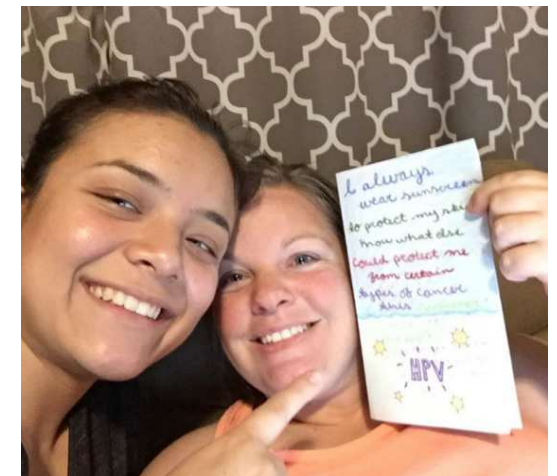 I always
wear sunscreen
to protect my skin
know what else
Could protect me
from certain
types of cancer
this
HPV